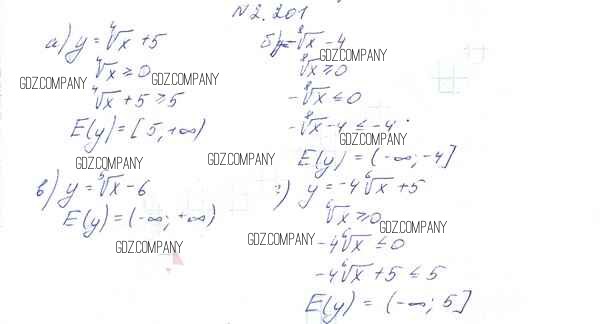 N 2.201
а) y = ⁴√x + 5
⁴√x ≥ 0
⁴√x + 5 ≥ 5
E(y) = [5, +∞)
б) y = -⁸√x - 4
⁸√x ≥ 0
-⁸√x ≤ 0
-⁸√x - 4 ≤ -4.
E(y) = (-∞, -4]
в) y = ⁵√x - 6
E(y) = (-∞; +∞)
г) y = -4⁶√x + 5
⁶√x ≥ 0
-4⁶√x ≤ 0
-4⁶√x + 5 ≤ 5
E(y) = (-∞; 5]
GDZ.COMPANY
GDZ.COMPANY
GDZ.COMPANY
GDZ.COMPANY
GDZ.COMPANY
GDZ.COMPANY
GDZ.COMPANY
GDZ.COMPANY
GDZ.COMPANY